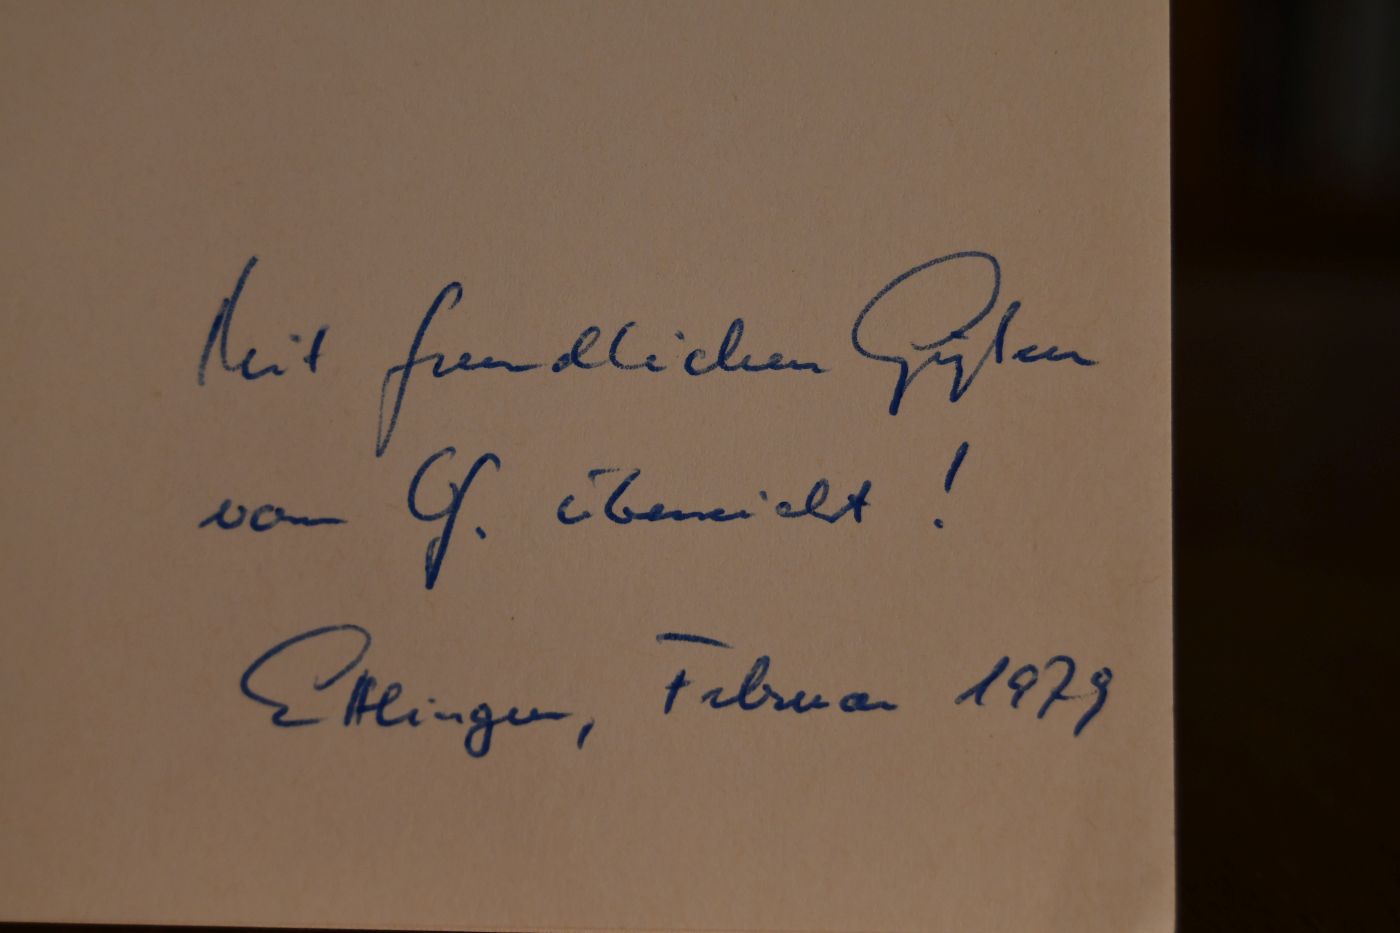 Mit freundlichen Grüßen
vom Vf. überreicht!
Ettlingen, Februar 1979